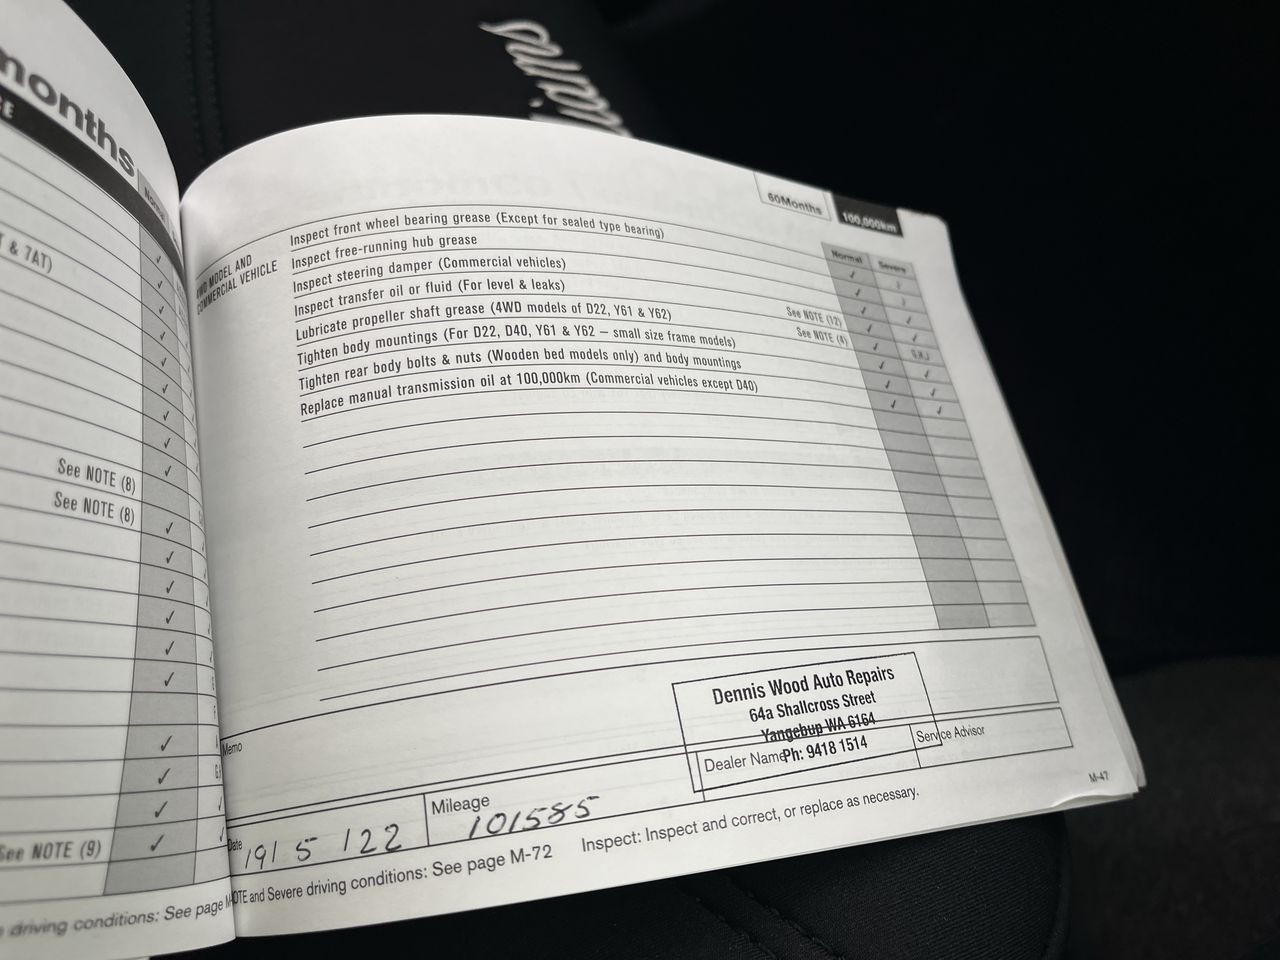 months
Normal
T & 7AT)
See NOTE (8)
See NOTE (8)
See NOTE (9)
driving conditions: See page M-
60Months
100,000km
Normal
Severe
4WD MODEL AND
COMMERCIAL VEHICLE
Inspect front wheel bearing grease (Except for sealed type bearing)
Inspect free-running hub grease
Inspect steering damper (Commercial vehicles)
Inspect transfer oil or fluid (For level & leaks)
Lubricate propeller shaft grease (4WD models of D22, Y61 & Y62) See NOTE (12)
Tighten body mountings (For D22, D40, Y61 & Y62 – small size frame models) See NOTE (4)
Tighten rear body bolts & nuts (Wooden bed models only) and body mountings
Replace manual transmission oil at 100,000km (Commercial vehicles except D40)
Memo
Dennis Wood Auto Repairs
64a Shallcross Street
Yangebup WA 6164
Ph: 9418 1514
Dealer Name
Service Advisor
Date
19/ 5 /22
Mileage
101585
NOTE and Severe driving conditions: See page M-72
Inspect: Inspect and correct, or replace as necessary.
M-47